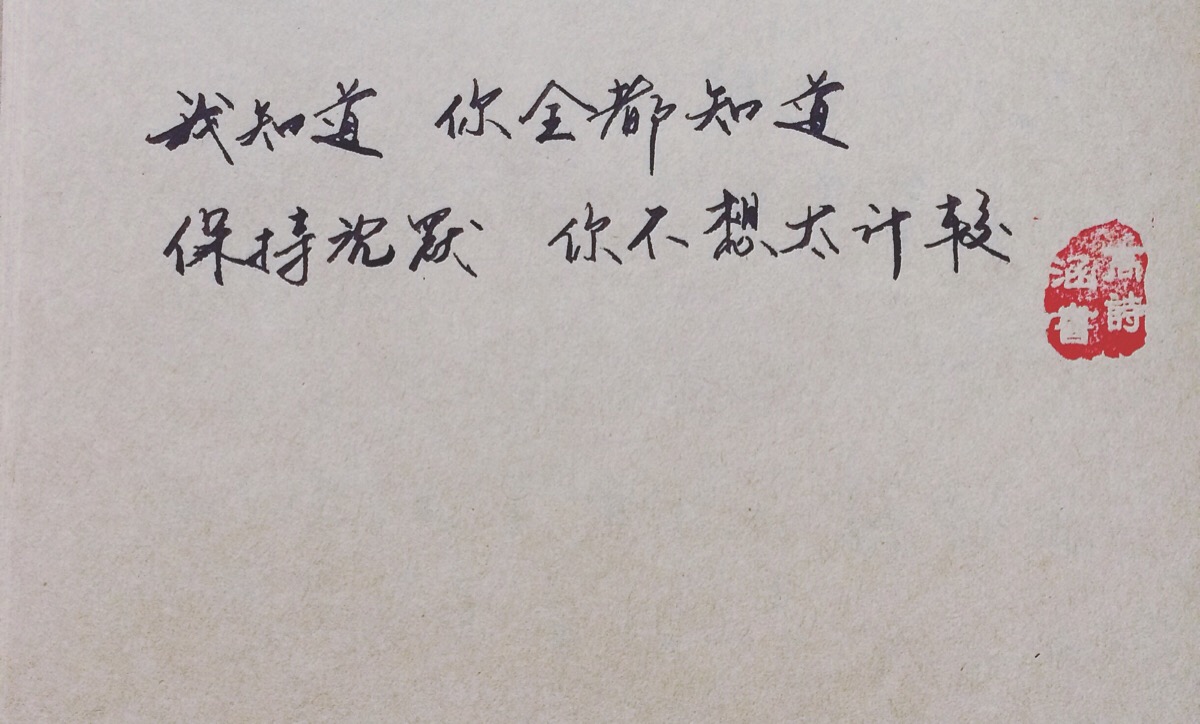 我知道 你全都知道
保持沉默 你不想太计较
高詩
涵書